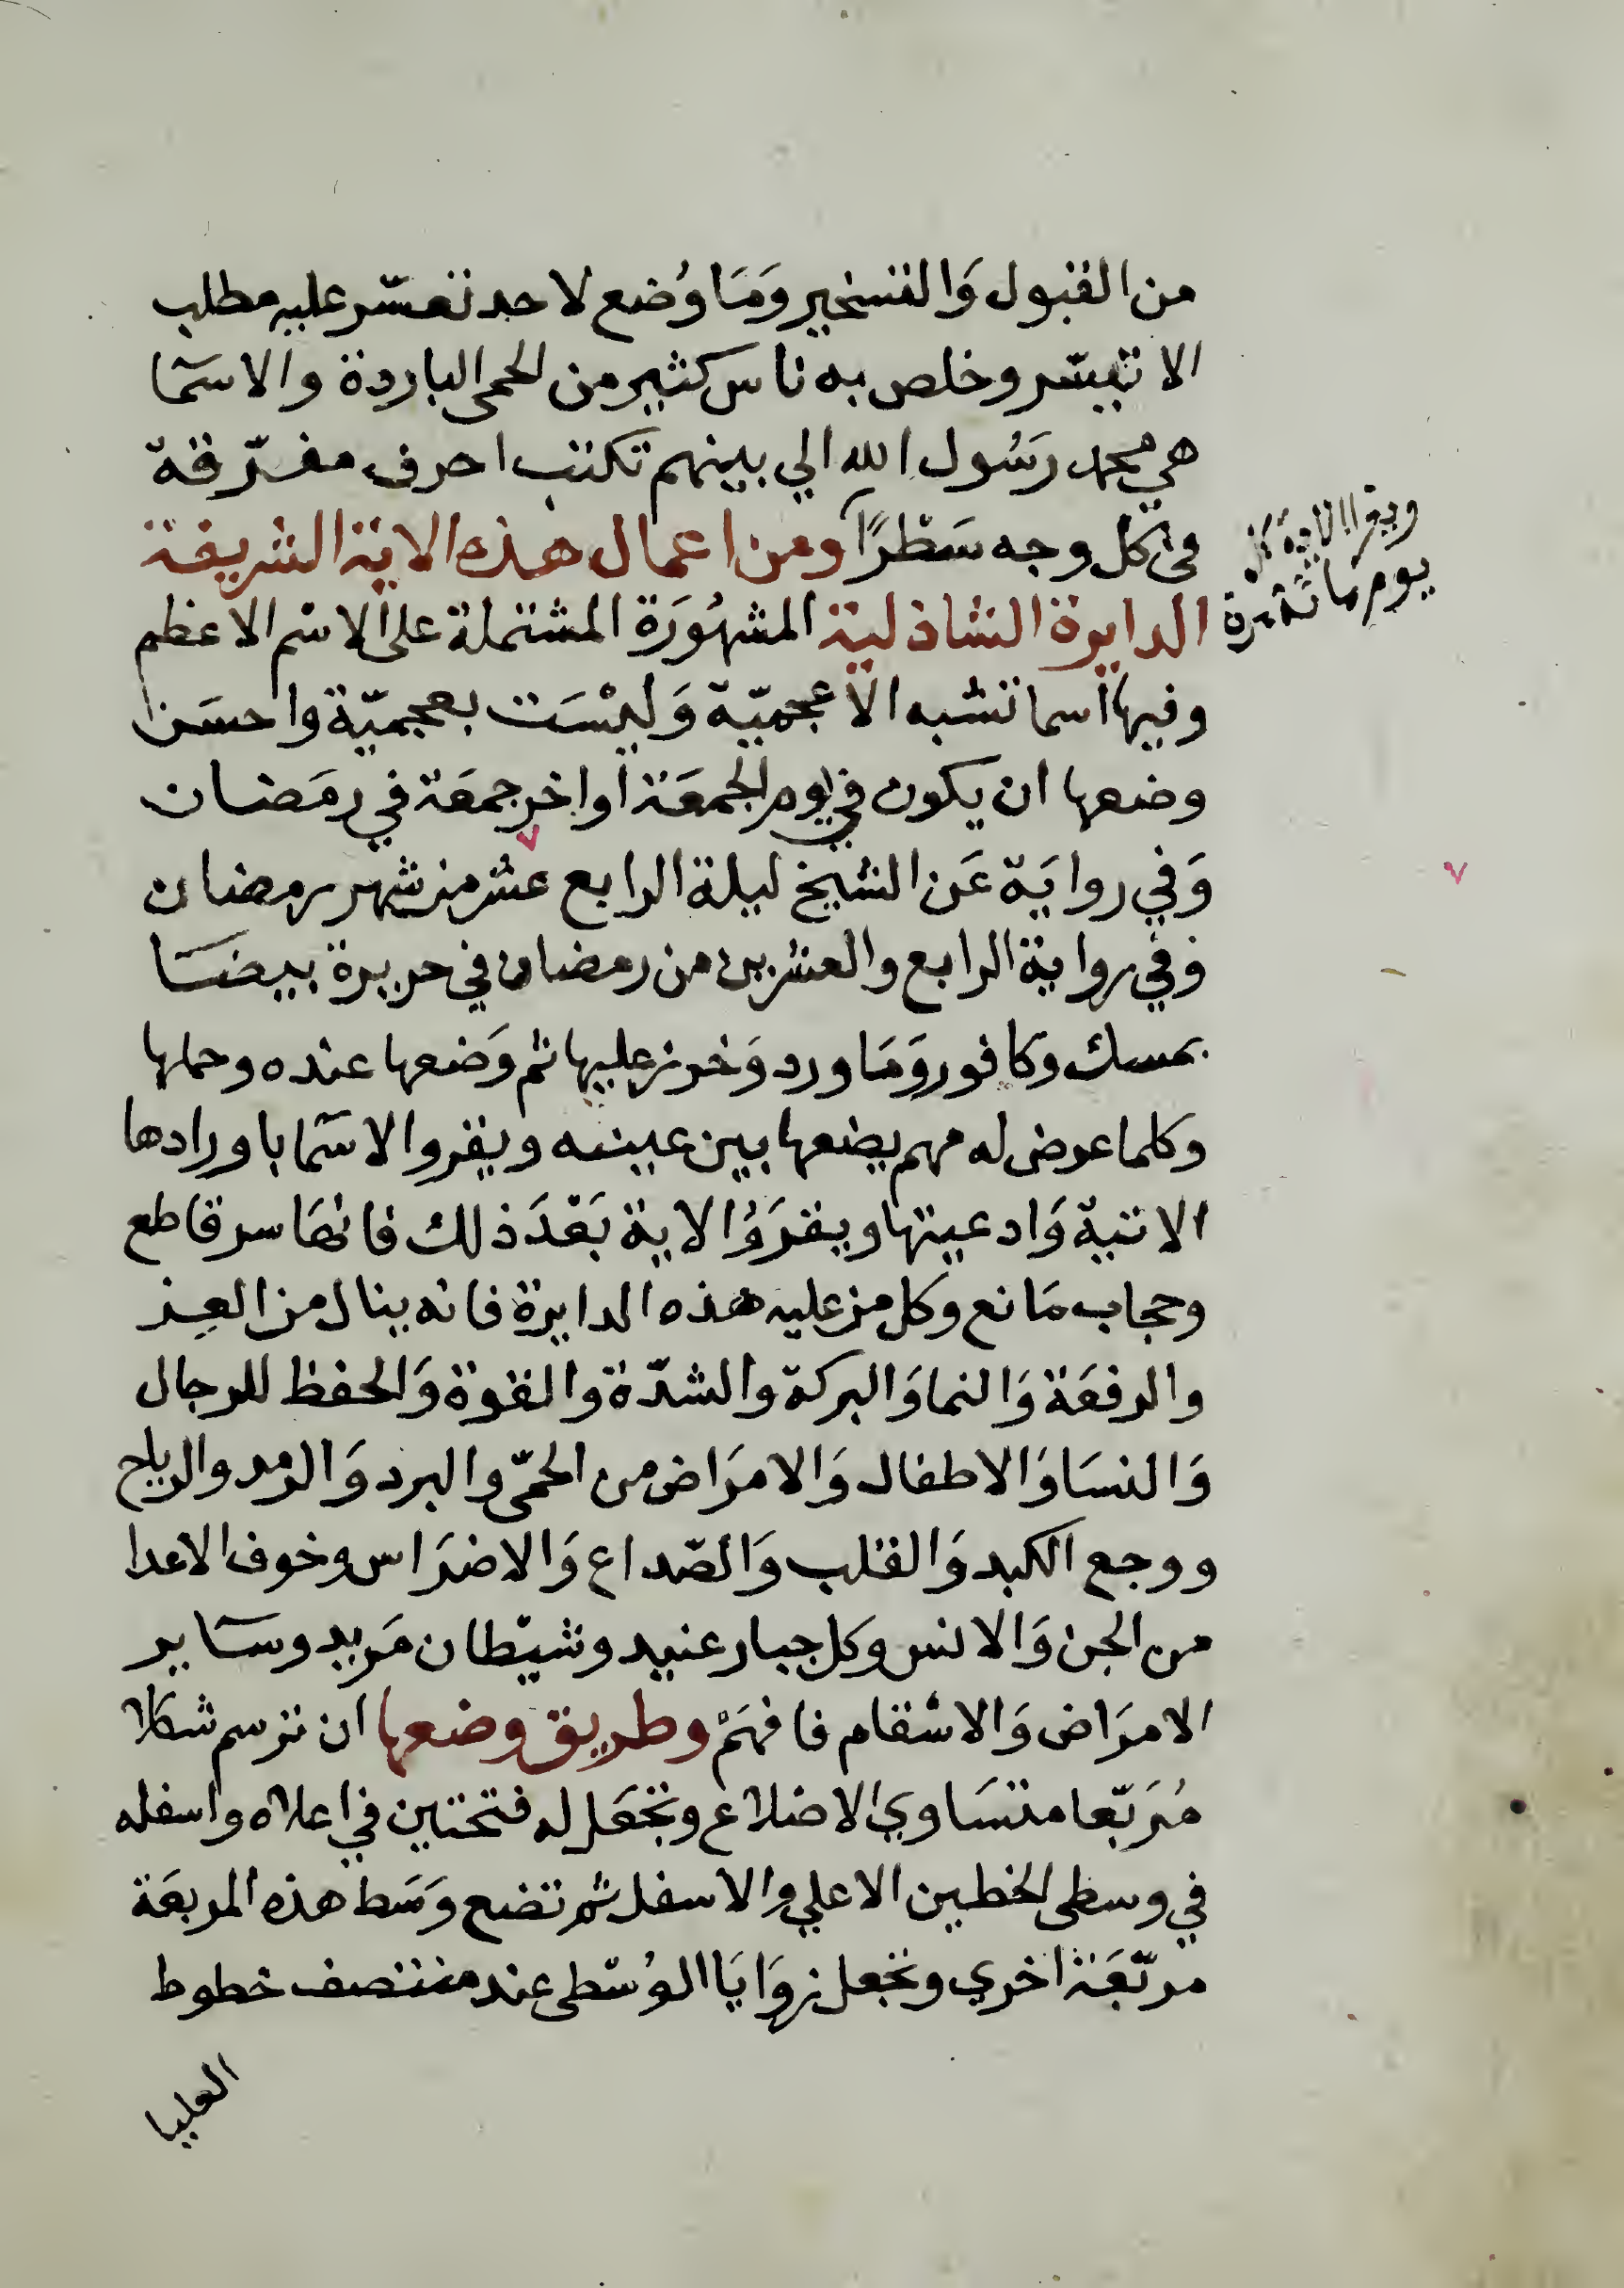 من القبول وَالتسخير وَمَا وُضع لاحد تعسّر عليه مطلب
الا تيسّر وخلص به ناس كثير من الحمى الباردة والاسمآ
هي محمد رَسُول الله الي بينهم تكتب احرف مفرّقة
في كل وجه سَطْرًا ومن اعمال هذه الاية الشريفة
ويقرا الاية كل
يوم مائة مرة
الدايرة الشاذلية المشهُورَة المشتملة على الاسْم الاعظم
وفيها اسما تشبه الاعجميّة وَليْسَت بعجميّة واحسَن
وضعها ان يكون في يوم الجمعَة اواخر جمعَة في رمَضان
وَفي روايَة عَن الشيخ ليلة الرابع عشر من شهر رمضان
وَفي رواية الرابع والعشرين من رمضان في حريرة بيضَآ
بمسك وكافور وَمَا ورد وَخرز عليها ثم وَضعها عنده وحملها
وكلما عرض له مهم يضعها بين عينيه ويقروا الاسمآ باورادها
الاتية وَادعيتها ويقرَؤُا الاية بَعْدَ ذلك فانهَا سر قاطع
وحجاب مَانع وكل من عليه هذه الدايرة فانه ينال من العِز
والرفعَة وَالنما وَالبركة والشدّة والقوة وَالحفظ للرجال
وَالنسَا وَالاطفال وَالامرَاض من الحمّى والبرد وَالرمد والرياح
ووجع الكبد وَالقلب وَالصّداع وَالاضرَاس وخوف الاعدا
من الجن وَالانس وكل جبار عنيد وشيْطان مَريد وسَاير
الامرَاض وَالاسْقام فافهَمْ وطريق وضعها ان ترسم شكلا
مُرَبّعا متسَاوي الاضلاع وتجعَل له فتحتين في اعلاه واسفله
في وسطى الخطين الاعلي والاسفل ثم تضع وَسَط هذه المربعَة
مربّعَة اخري وتجعل زوَايَا الوُسْطى عند منتصف خطوط
العليا